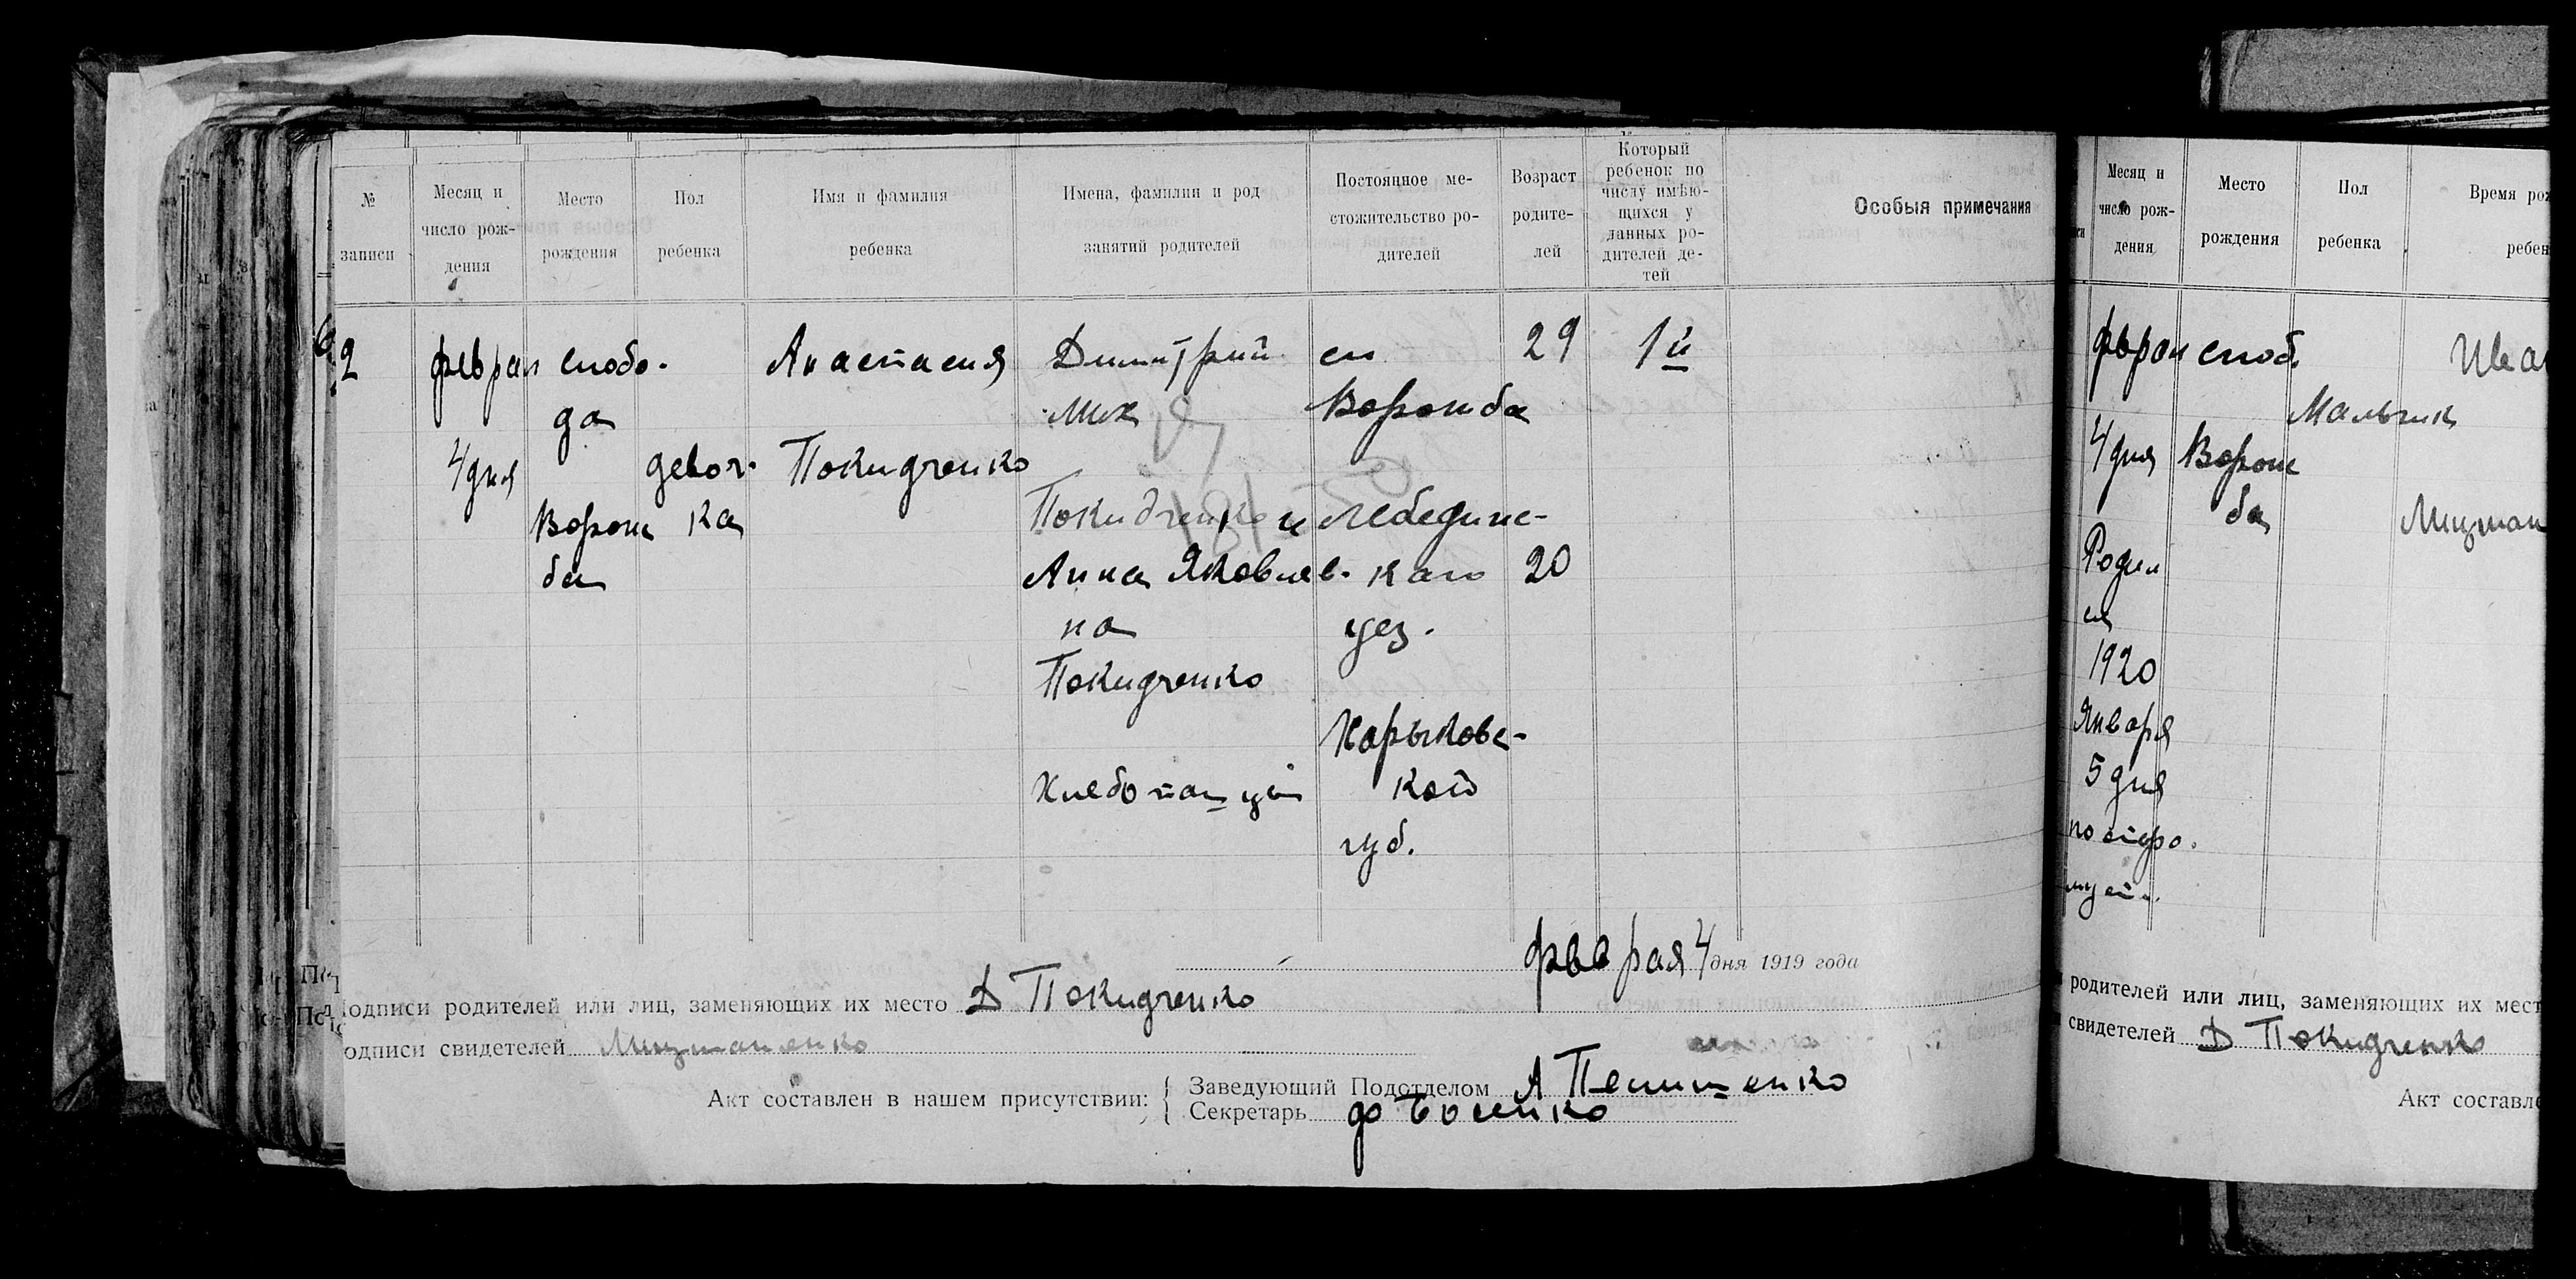 № записи
Месяц и число рождения
Место рождения
Пол ребенка
Имя и фамилия ребенка
Имена, фамилии и род занятий родителей
Постоянное местожительство родителей
Возраст родителей
Который ребенок по числу имѣющихся у данных родителей детей
Особыя примечания
2
феврал
4 дня
слобо-
да
Ворож
ба
девоч-
ка
Анастасия
Покидченко
Димитрий
Мих
Покидченко и
Анна Яковлев-
на
Покидченко
Хлебопашцы
сл
Ворожба
Лебединс-
каго
уез.
Харьковс-
кой
губ.
29
20
1й
феврая 4 дня 1919 года
Подписи родителей или лиц, заменяющих их место Д Покидченко
одписи свидетелей
Акт составлен в нашем присутствии:
Заведующий Подотделом А
Секретарь
Месяц и число рождения
Место рождения
Пол ребенка
Время рож
ребен
феврал
4 дня
Родил
ся
1920
Января
5 дня
слоб.
Ворож
ба
Мальчик
Ива
родителей или лиц, заменяющих их мест
свидетелей Д Покидченко
Акт составле